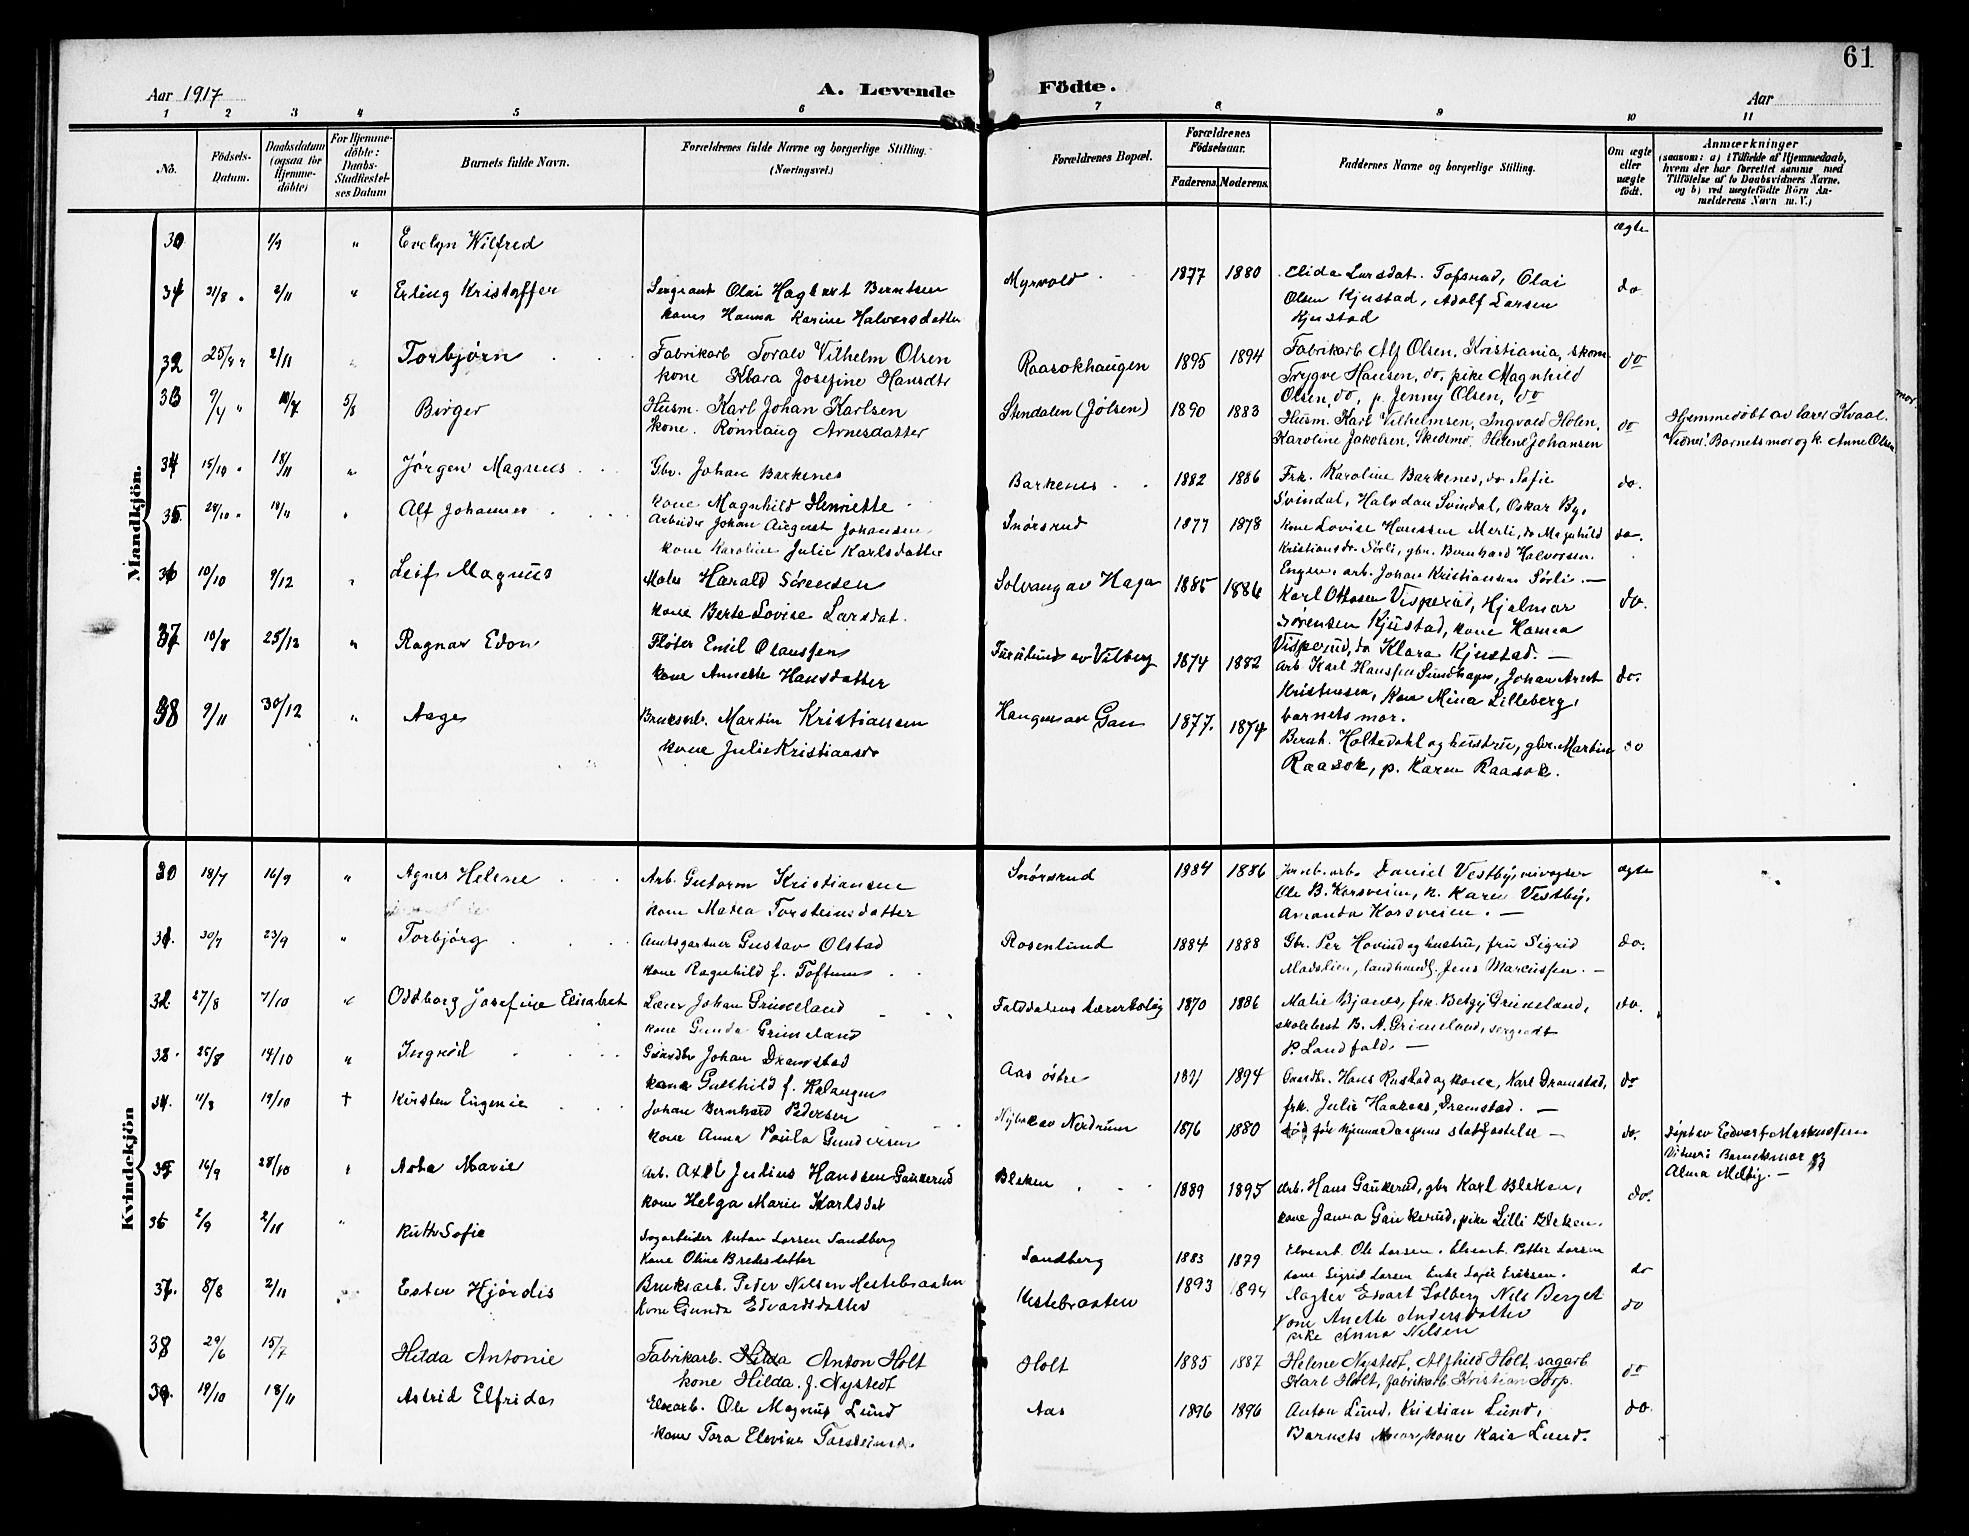 61
Aar 1917
A. Levende
Födte.
Aar
1 2 3 4 5 6 7 8 9 10 11
No.
Födsels-Datum.
Daabsdatum (ogsaa for Hjemme-döbte)
For Hjemme-döbte: Daabs-Stadfæstel-ses Datum
Barnets fulde Navn.
Forældrenes fulde Navne og borgerlige Stilling. (Næringsvei.)
Forældrenes Bopæl.
Forældrenes Födselsaar.
Faderens. Moderens.
Faddernes Navne og borgerlige Stilling.
Om ægte eller uægte födt.
Anmærkninger
(saasom: a) i Tilfælde af Hjemmedaab, hvem der har forrettet samme med Tilföielse af to Daabsvidners Navne, og b) ved uægtefödte Börn An-melderens Navn m. V.)
Mandkjön.
30 1/9 " Evelyn Wilfred ægte
31 21/8 " 2/11 " Erling Kristoffer
Sergeant Olai Hagbart Berntsen
kone Hanna Karine Halvorsdatter
Myrvold 1877 1880
Elida Larsdat. Tofsrud, Olai
Olsen Kjustad, Adolf Larsen
Kjustad
do
32 25/9 " 2/11 Torbjørn
Fabrikarb Toralv Vilhelm Olsen
kone Klara Josefine Hansdtr
Raasokhaugen 1895 1894
Fabrikarb Alf Olsen, Kristiania, skom
Trygve Hansen, do, pike Magnhild
Olsen, do, p. Jenny Olsen, do
do
33 9/4 " 10/7 5/8 Birger
Husm. Karl Johan Karlsen
kone. Rønnaug Arnesdatter
Stendalen (Jølsen) 1890 1883
Husm. Karl Vilhelmsen, Ingvald Holen,
Karoline Jakolsen, Skedsmo, Helene Johansen
do
Hjemmedøbt av lærer Kvaal.
Vidner: Barnets mor og k. Anne Olsen
34 15/10 " 18/11 " Jørgen Magnus
Gbr. Johan Barkenes
kone Magnhild Henriette
Barkenes 1882 1886
Frk. Karoline Barkenes, do Sofie
Svindal, Halvdan Svindal, Oskar By,
do.
35 28/10 " 18/11 " Alf Johannes
Arbeider Johan August Johansen
kone Karoline Julie Karlsdatter
Snörsrud 1877 1878
kone Lovise Hanssen Merli, do Magnhild
Kristiansdr. Sørli, gbr. Bernhard Halvorsen
Engen, arb. Johan Kristiansen Sørli. —
do.
36 10/10 9/12 " Leif Magnus
Maler Harald Sørensen
kone Berte Lovise Larsdat.
Solvang av Haga 1885 1886
Karl Ottosen Visperud, Hjalmar
Sørensen Kjustad, kone Hanna
Visperud, do Klara Kjustad. —
do.
37 10/8 25/12 " Ragnar Edon
Fløter Emil Olaussen
kone Annette Hansdatter
Furulund av Vilberg 1874 1882
Arb. Karl Hanssen Sundhagen, Johan Arnt
Kristensen, kone Mina Lilleberg,
barnets mor.
do.
38 9/11 30/12 " Aage
Bruksarb. Martin Kristiansen
kone Julie Kristiansdr
Haugen av Gan 1877. 1874
Bernh. Holtedahl og hustru, gbr. Martin
Raasok, p. Karen Raasok.
do
Kvindekjön
30 18/7 16/9 " Agnes Helene
Arb. Gutorm Kristiansen
kone Matea Torsteinsdatter
Snörsrud 1884 1886
Jernb. arb. Daniel Vestby,
Ole B. Korsveien, k. Karen Vestby,
Amanda Korsveien. —
ægte
31. 30/7 23/9 " Torbjörg
Amtsgartner Gustav Olstad
kone Ragnhild f. Toftum
Rosenlund 1884 1888
Gbr. Per Hovind og hustru, fru Sigrid
Madslien, landhandl. Jens Marcussen. —
do.
32. 27/8 7/10 " Oddborg Josefine Elisabet
Lærer Johan Grimeland
kone Gunda Grimeland
Faldalens Lærerbolig 1870 1886
Matie Bjanes, frk. Betzy Grimeland,
skolebest B. A. Grimeland, sergeant
P. Landfald. —
do.
33. 25/8 14/10 " Ingrid
Gaardbr Johan Dramstad
kone Gudhild f. Kalangen
Aas østre 1871 1894
Gaardbr. Hans Rustad og kone, Karl Dramstad,
frk. Julie Haakaas, Dramstad. —
do
34. 11/8 19/10 † Kirsten Eugenie
Johan Bernhard Pedersen
kone Anna Paula Gundersen
Nybak av Nordrum 1876 1880
død før hjemmedaapens stadfestelse —
do.
Døpt av Edvart Markussen
Vidner: Barnets mor og
Alma Melby. —
35 16/9 28/10 " Asta Marie
Arb. Axel Julius Hanssen Gaukerud
kone Helga Marie Karlsdat
Bleken 1889 1895
Arb. Hans Gaukerud, gbr Karl Bleken,
kone Janna Gaukerud, pike Lilli Bleken.
do.
36 2/9 2/11 " Ruth Sofie
Sagarbeider Anton Larsen Sandberg
Kone Oline Bredesdatter
Sandberg 1883 1879
Elvearb. Ole Larsen. Elvearb. Petter Larsen
kone Sigrid Larsen Enke Sofie Eriksen.
do
37. 8/8 2/11 Ester Hjördis
Bruksarb. Peder Nilsen Hestebraaten
Kone Gunda Edvardsdatter
Hestebraaten 1893 1894
Edvart Solberg Nils Berget
Kone Anette Andersdatter
pike Anna Nilsen
do
38 29/6 15/7 Hilda Antonie
Fabrikarb. Hilda Anton Holt
kone Hilda. f. Nystedt
Holt 1885 1887
Helene Nystedt, Alfhild Holt, sagarb
Karl Holt, fabrikarb Kristian Torp.
do
39. 19/10 18/11 Astrid Elfrida
Elvearb. Ole Magnus Lund
kone Tora Elevine Torsteinsd.
Aas 1896 1896
Anton Lund, Kristian Lund,
Barnets Mor, kone Kaia Lund.
do